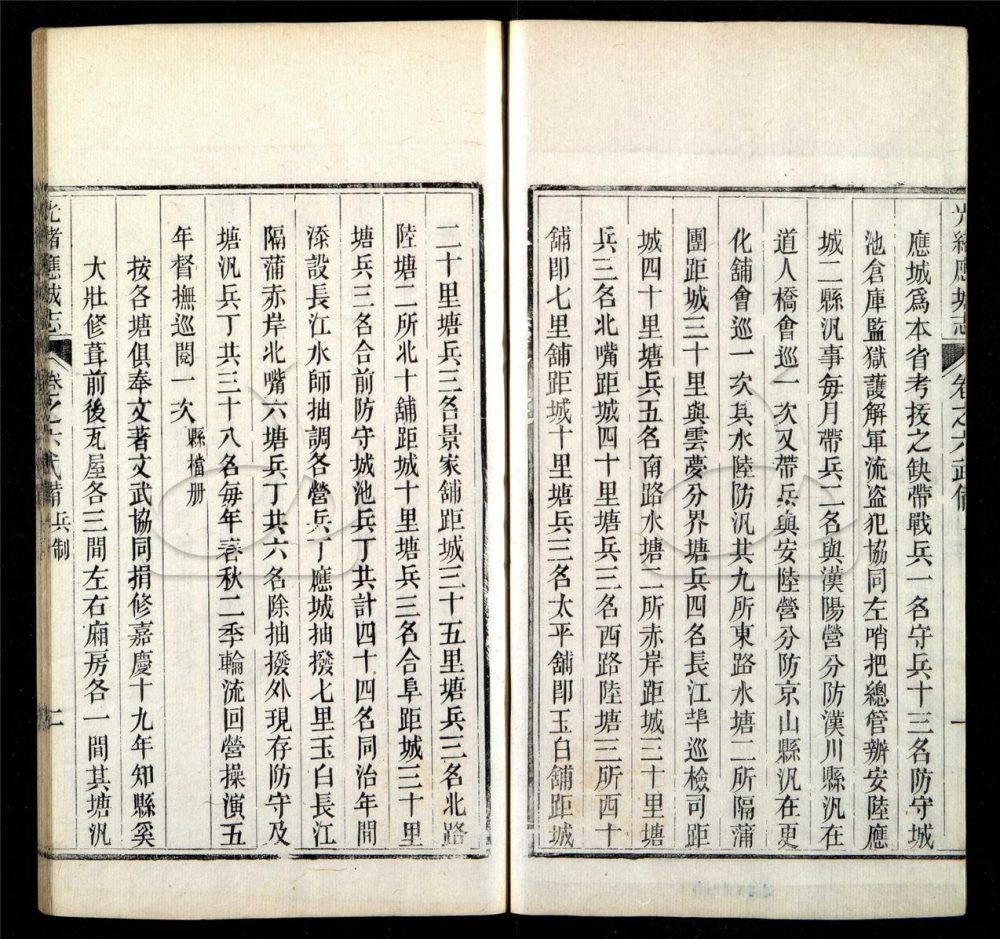 光緒應城志
卷之六武備
一
應城爲本省考拔之缺帶戰兵一名守兵十三名防守城
池倉庫監獄護解軍流盜犯協同左哨把總管辦安陸應
城二縣汛事每月帶兵二名與漢陽營分防漢川縣汛在
道人橋會巡一次又帶兵與安陸營分防京山縣汛在更
化舖會巡一次其水陸防汛共九所東路水塘二所隔蒲
團距城三十里與雲夢分界塘兵四名長江埠巡檢司距
城四十里塘兵五名南路水塘二所赤岸距城三十里塘
兵三名北嘴距城四十里塘兵三名西路陸塘三所西十
舖卽七里舖距城十里塘兵三名太平舖卽玉白舖距城
二十里塘兵三名景家舖距城三十五里塘兵三名北路
陸塘二所北十舖距城十里塘兵三名合阜距城三十里
塘兵三名合前防守城池兵丁共計四十四名同治年間
添設長江水師抽調各營兵丁應城抽撥七里玉白長江
隔蒲赤岸北嘴六塘兵丁共六名除抽撥外現存防守及
塘汛兵丁共三十八名每年春秋二季輪流回營操演五
年督撫巡閱一次縣檔册
按各塘俱奉文著文武協同捐修嘉慶十九年知縣奚
大壯修葺前後瓦屋各三間左右廂房各一間其塘汛
光緒應城志
卷之六武備 兵制
二